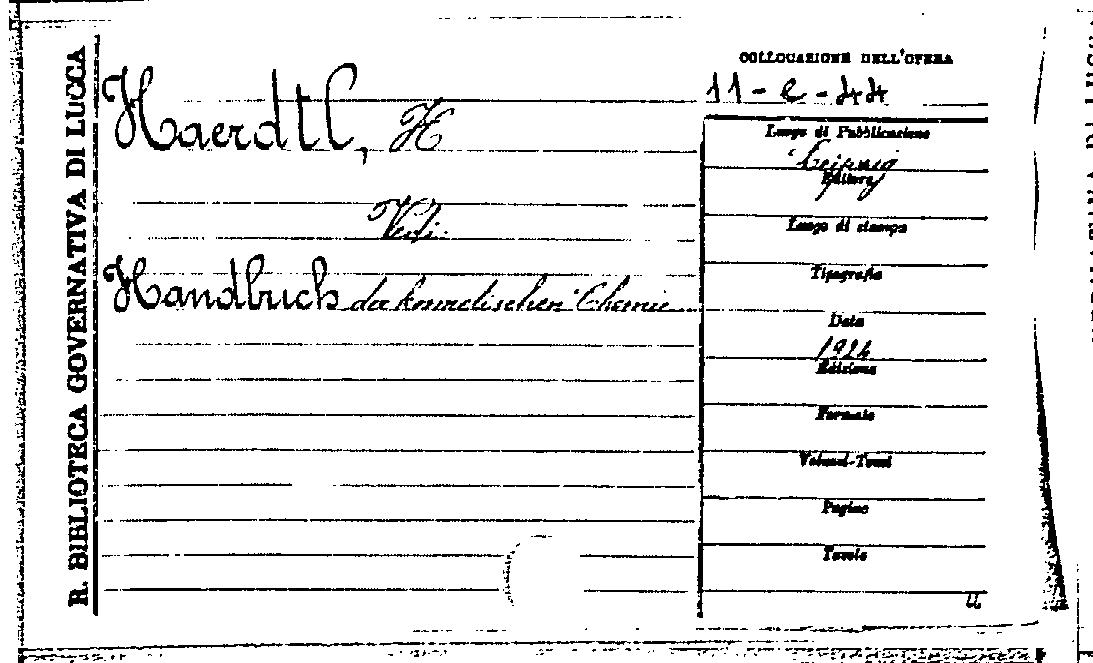 R. BIBLIOTECA GOVERNATIVA DI LUCCA
COLLOCAZIONE DELL'OPERA
11 - e - 44
Haerdtl, H
Vedi:
Handbuch der kosmetischen Chemie
Luogo di Pubblicazione
Leipzig
Editore
Luogo di stampa
Tipografia
Data
1924
Edizione
Formato
Volumi-Tomi
Pagine
Tavole